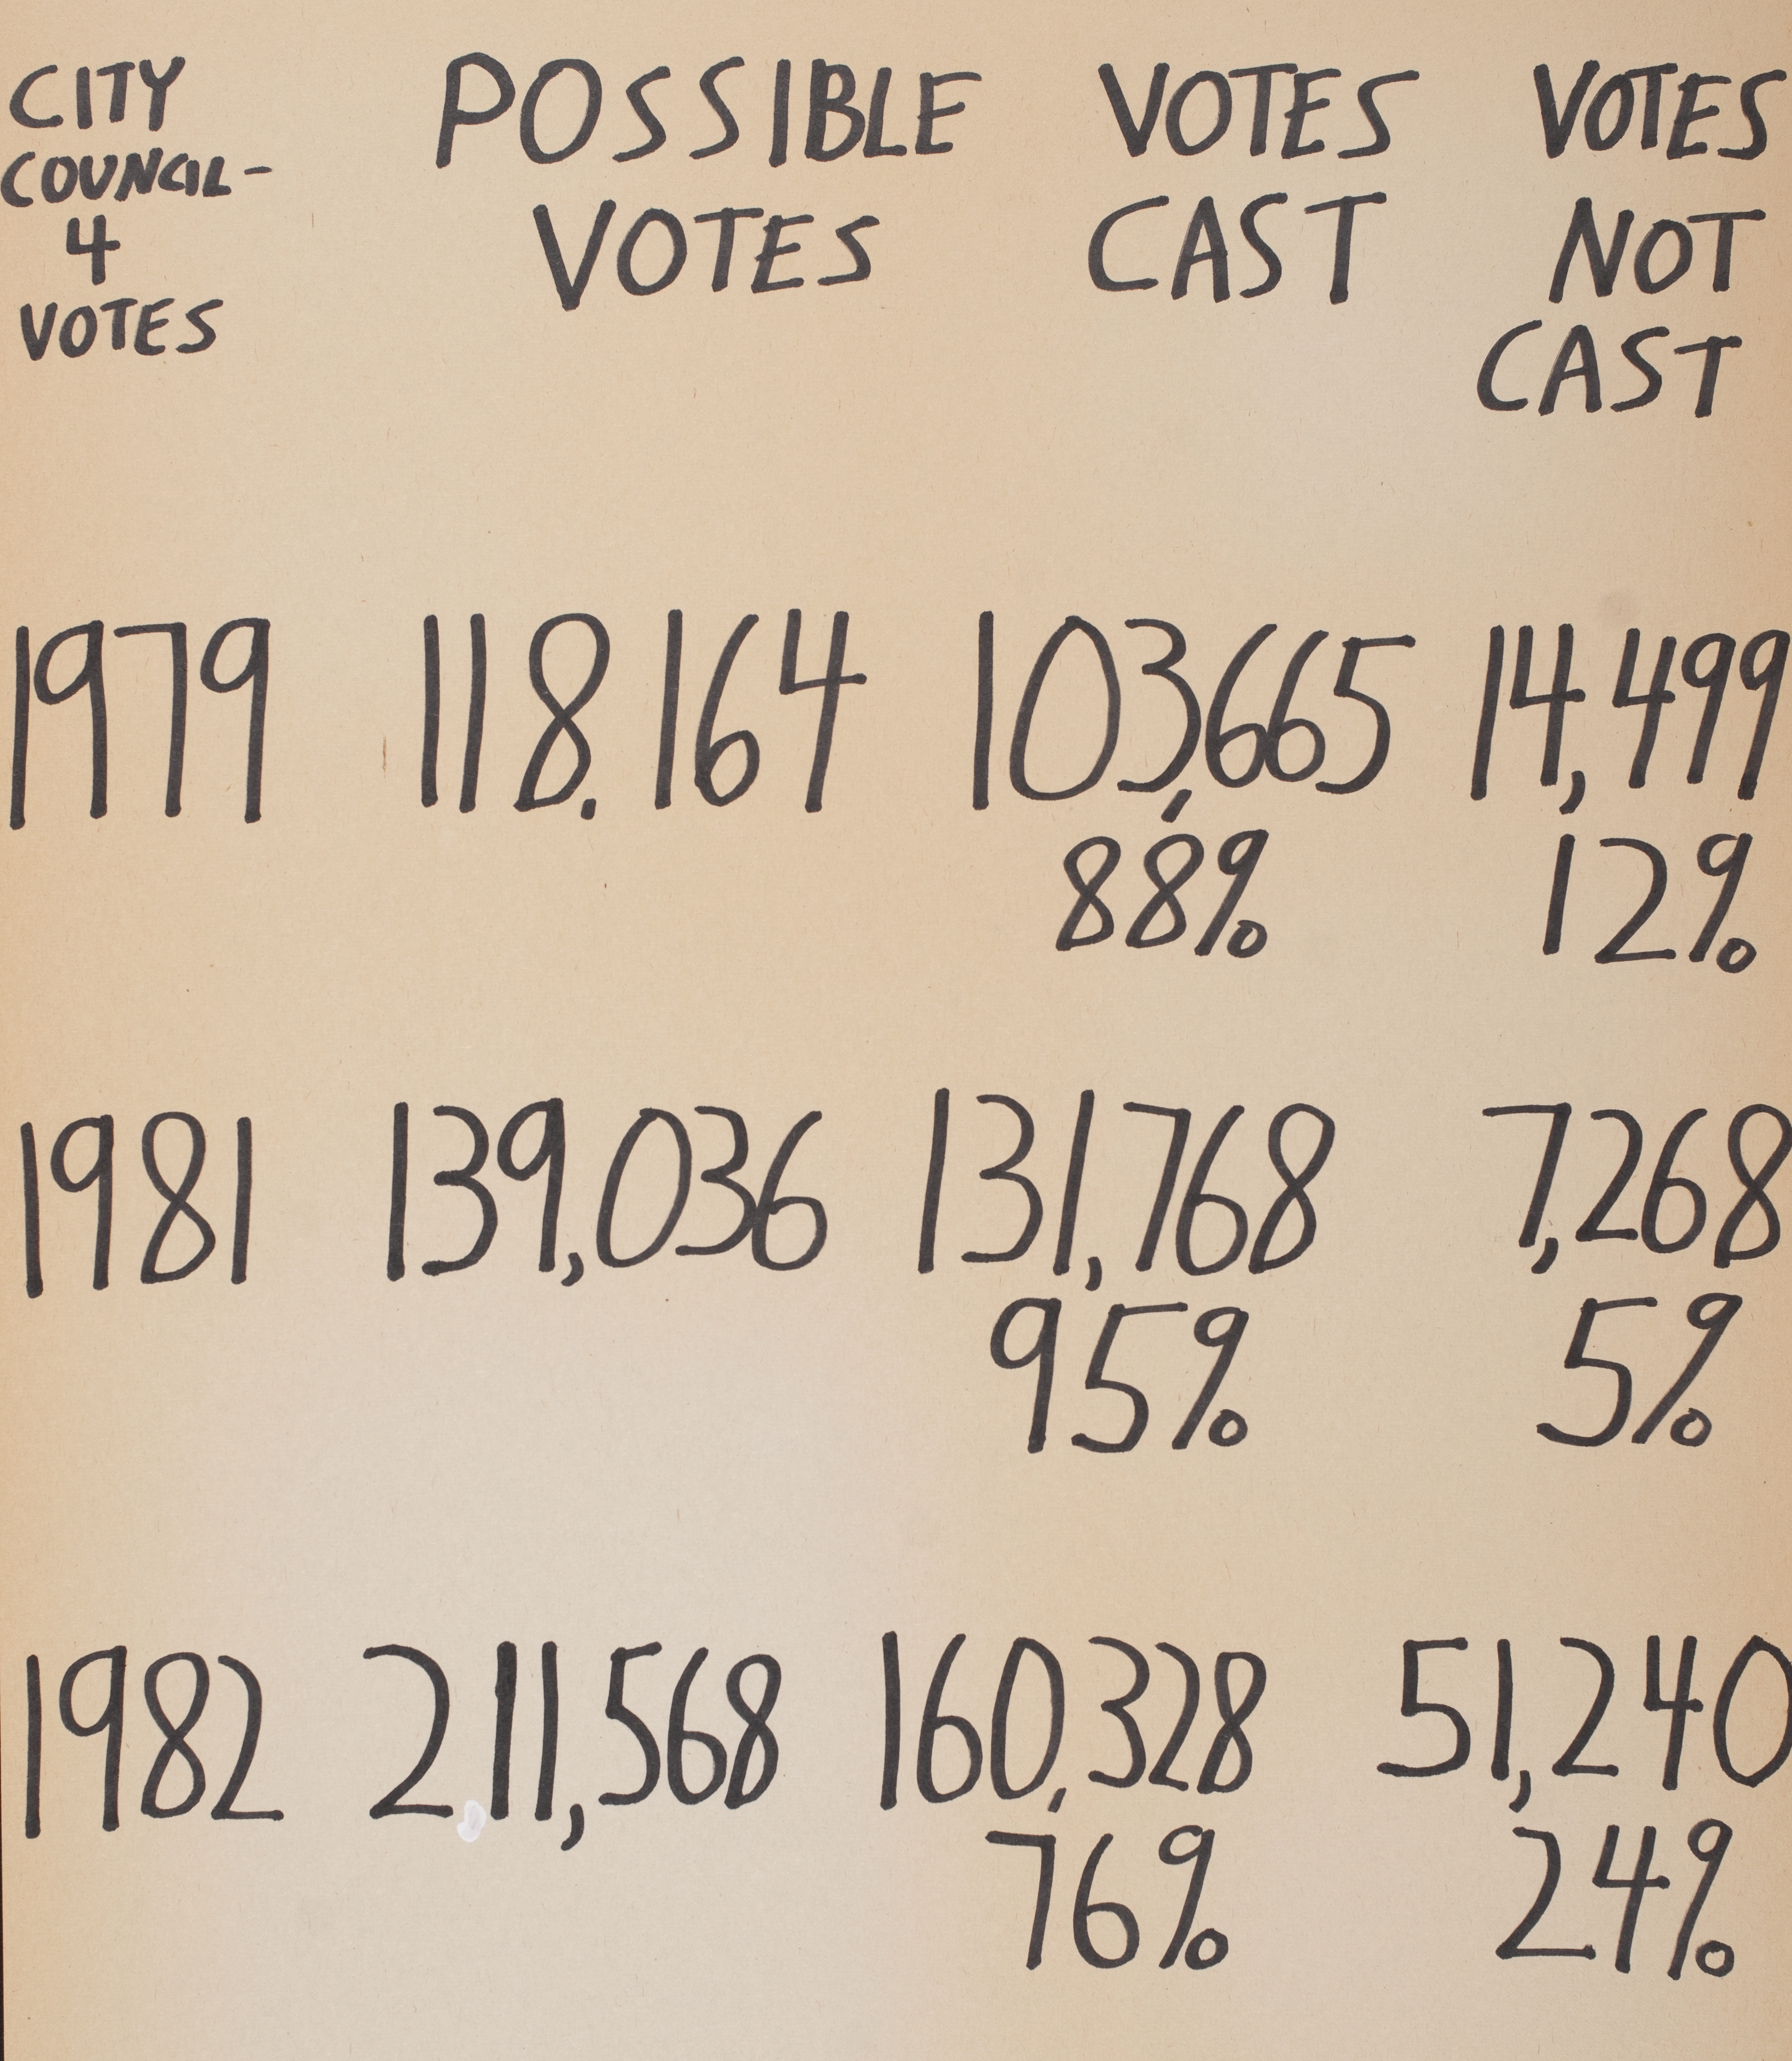 CITY POSSIBLE VOTES VOTES
COUNCIL- VOTES CAST NOT
4 CAST
VOTES
1979 118.164 103,665 14,499
88% 12%
1981 139,036 131,768 7,268
95% 5%
1982 211,568 160,328 51,240
76% 24%